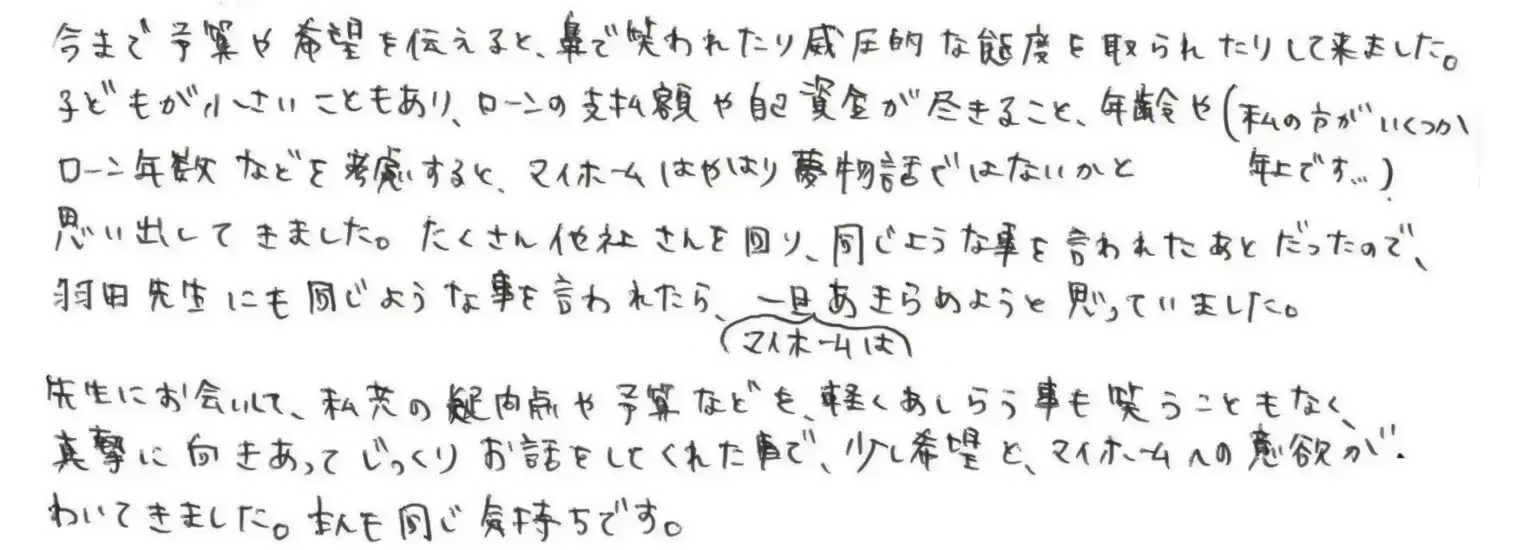 今まで予算や希望を伝えると、鼻で笑われたり威圧的な態度を取られたりして来ました。
子どもが小さいこともあり、ローンの支払額や自己資金が尽きること、年齢や(私の方がいくつか
ローン年数などを考慮すると、マイホームはやはり夢物語ではないかと 年上です…)
思い出してきました。たくさん他社さんを回り、同じような事を言われたあとだったので、
羽田先生にも同じような事を言われたら、一旦あきらめようと思っていました。
(マイホームは)
先生にお会いして、私共の疑問点や予算などを、軽くあしらう事も笑うこともなく、
真摯に向きあってじっくりお話をしてくれた事で、少し希望と、マイホームへの意欲が
わいてきました。主人も同じ気持ちです。